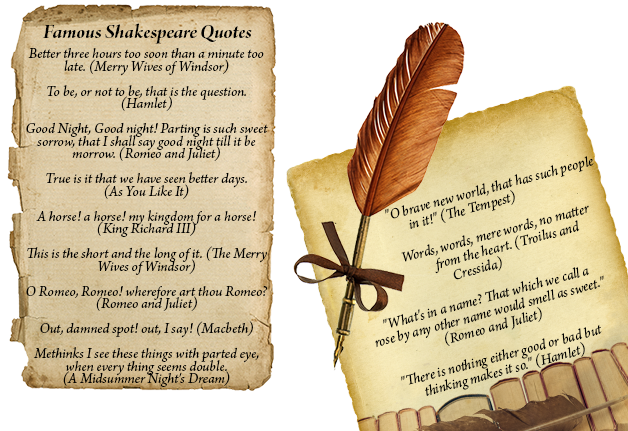 Famous Shakespeare Quotes
Better three hours too soon than a minute too
late. (Merry Wives of Windsor)
To be, or not to be, that is the question.
(Hamlet)
Good Night, Good night! Parting is such sweet
sorrow, that I shall say good night till it be
morrow. (Romeo and Juliet)
True is it that we have seen better days.
(As You Like It)
A horse! a horse! my kingdom for a horse!
(King Richard III)
This is the short and the long of it. (The Merry
Wives of Windsor)
O Romeo, Romeo! wherefore art thou Romeo?
(Romeo and Juliet)
Out, damned spot! out, I say! (Macbeth)
Methinks I see these things with parted eye,
when every thing seems double.
(A Midsummer Night's Dream)
"O brave new world, that has such people
in it!" (The Tempest)
Words, words, mere words, no matter
from the heart. (Troilus and
Cressida)
"What's in a name? That which we call a
rose by any other name would smell as sweet."
(Romeo and Juliet)
"There is nothing either good or bad but
thinking makes it so." (Hamlet)